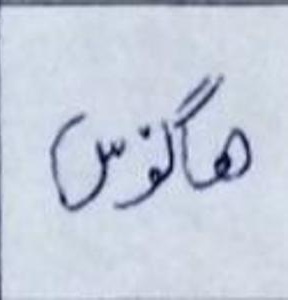 هاگوس